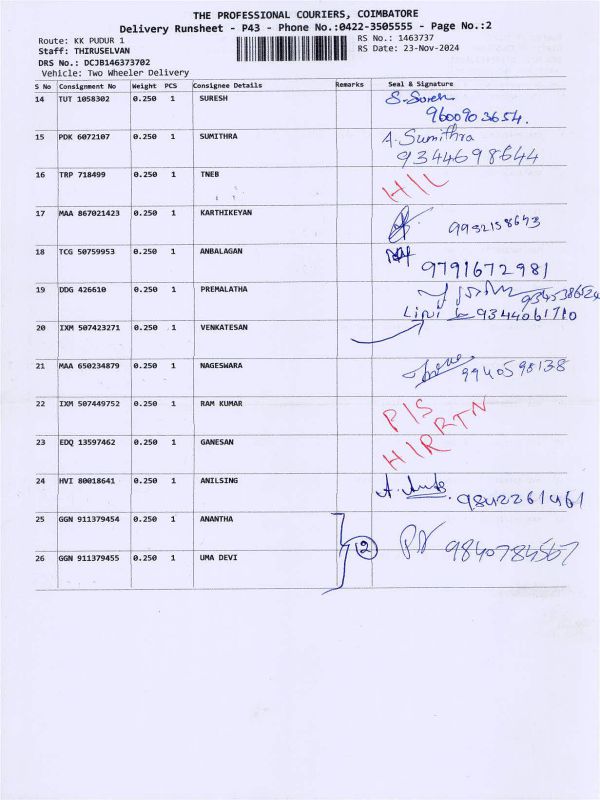 THE PROFESSIONAL COURIERS, COIMBATORE
Delivery Runsheet - P43 - Phone No.:0422-3505555 - Page No.:2
Route: KK PUDUR 1 RS No.: 1463737
Staff: THIRUSELVAN RS Date: 23-Nov-2024
DRS No.: DCJB146373702
Vehicle: Two Wheeler Delivery
S No Consignment No Weight PCS Consignee Details Remarks Seal & Signature
14 TUT 1058302 0.250 1 SURESH S. Suresh
9600903654.
15 PDK 6072107 0.250 1 SUMITHRA A. Sumithra
9344698644
16 TRP 718499 0.250 1 TNEB H/L
17 MAA 867021423 0.250 1 KARTHIKEYAN 9952158643
18 TCG 50759953 0.250 1 ANBALAGAN
9791672981
19 DDG 426610 0.250 1 PREMALATHA
9344061710
20 IXM 507423271 0.250 1 VENKATESAN
21 MAA 650234879 0.250 1 NAGESWARA 9940598138
22 IXM 507449752 0.250 1 RAM KUMAR P/S RTN
23 EDQ 13597462 0.250 1 GANESAN
24 HVI 80018641 0.250 1 ANILSING
9842261461
25 GGN 911379454 0.250 1 ANANTHA
2 9840784567
26 GGN 911379455 0.250 1 UMA DEVI